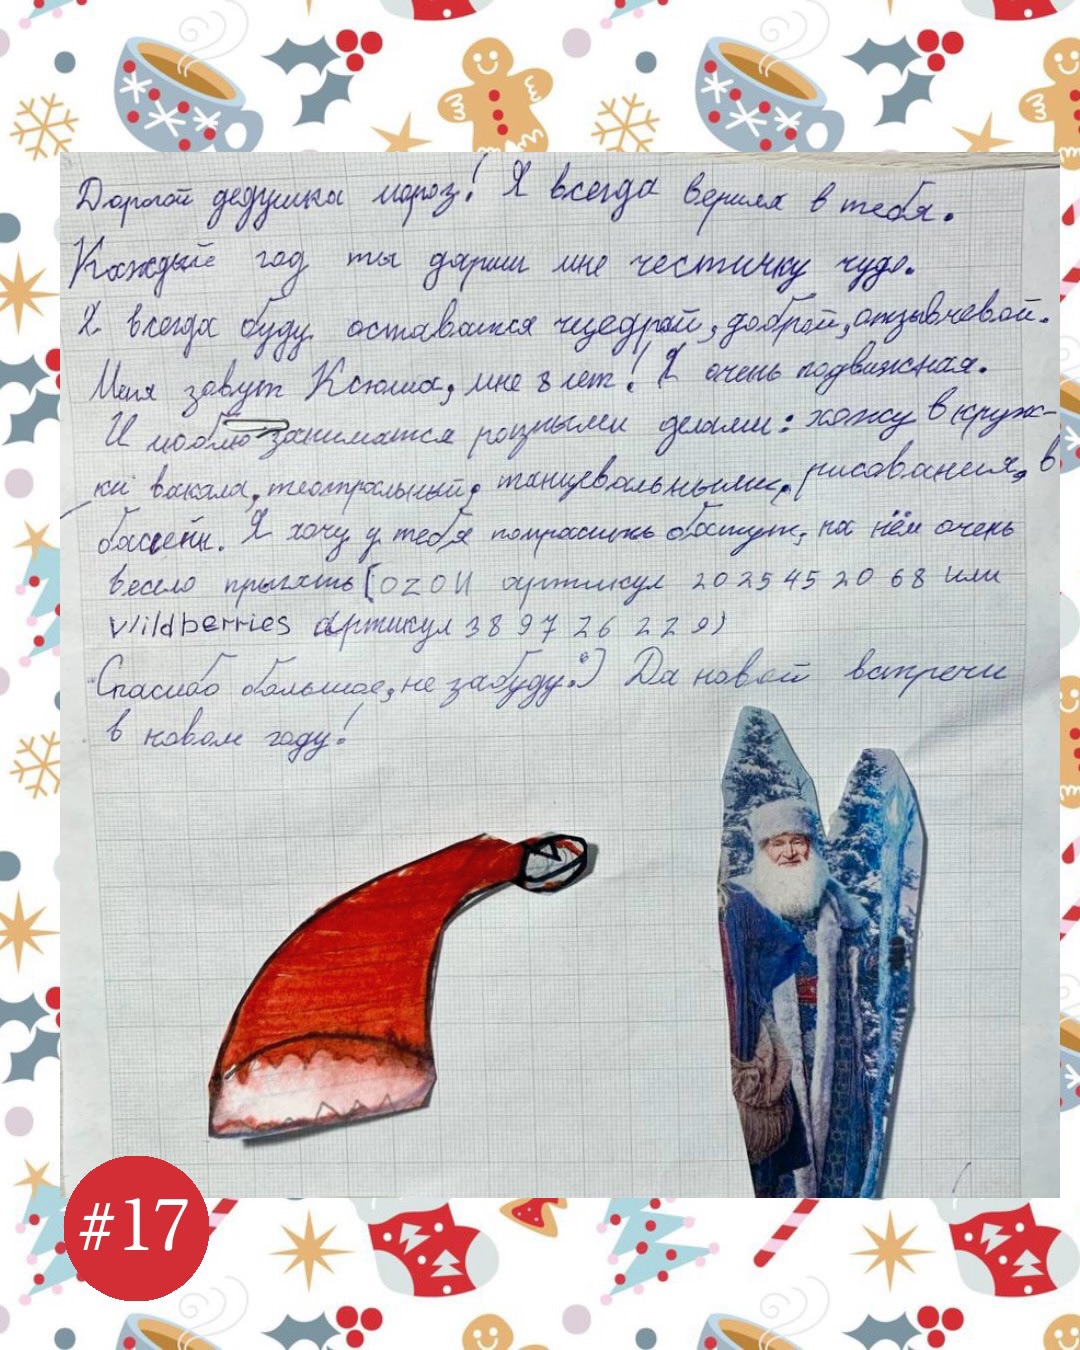 Дорогой дедушка мороз! Я всегда верила в тебя.
Каждый год ты дариш мне честичку чудо.
Я всегда буду оставатся щедрой, доброй, отзывчевой.
Меня зовут Ксюша, мне 8 лет! Я очень подвижная.
И люблю заниматся разными делами: хожу в круж-
ки вакала, театральный, танцевальными, рисования, в
бассейн. Я хочу у тебя попрасить батут, на нём очень
весело прыгать (OZON артикул 2025452068 или
Wildberries артикул 389726229)
Спасибо большое, не забуду :) Да новой встречи
в новом году!
#17